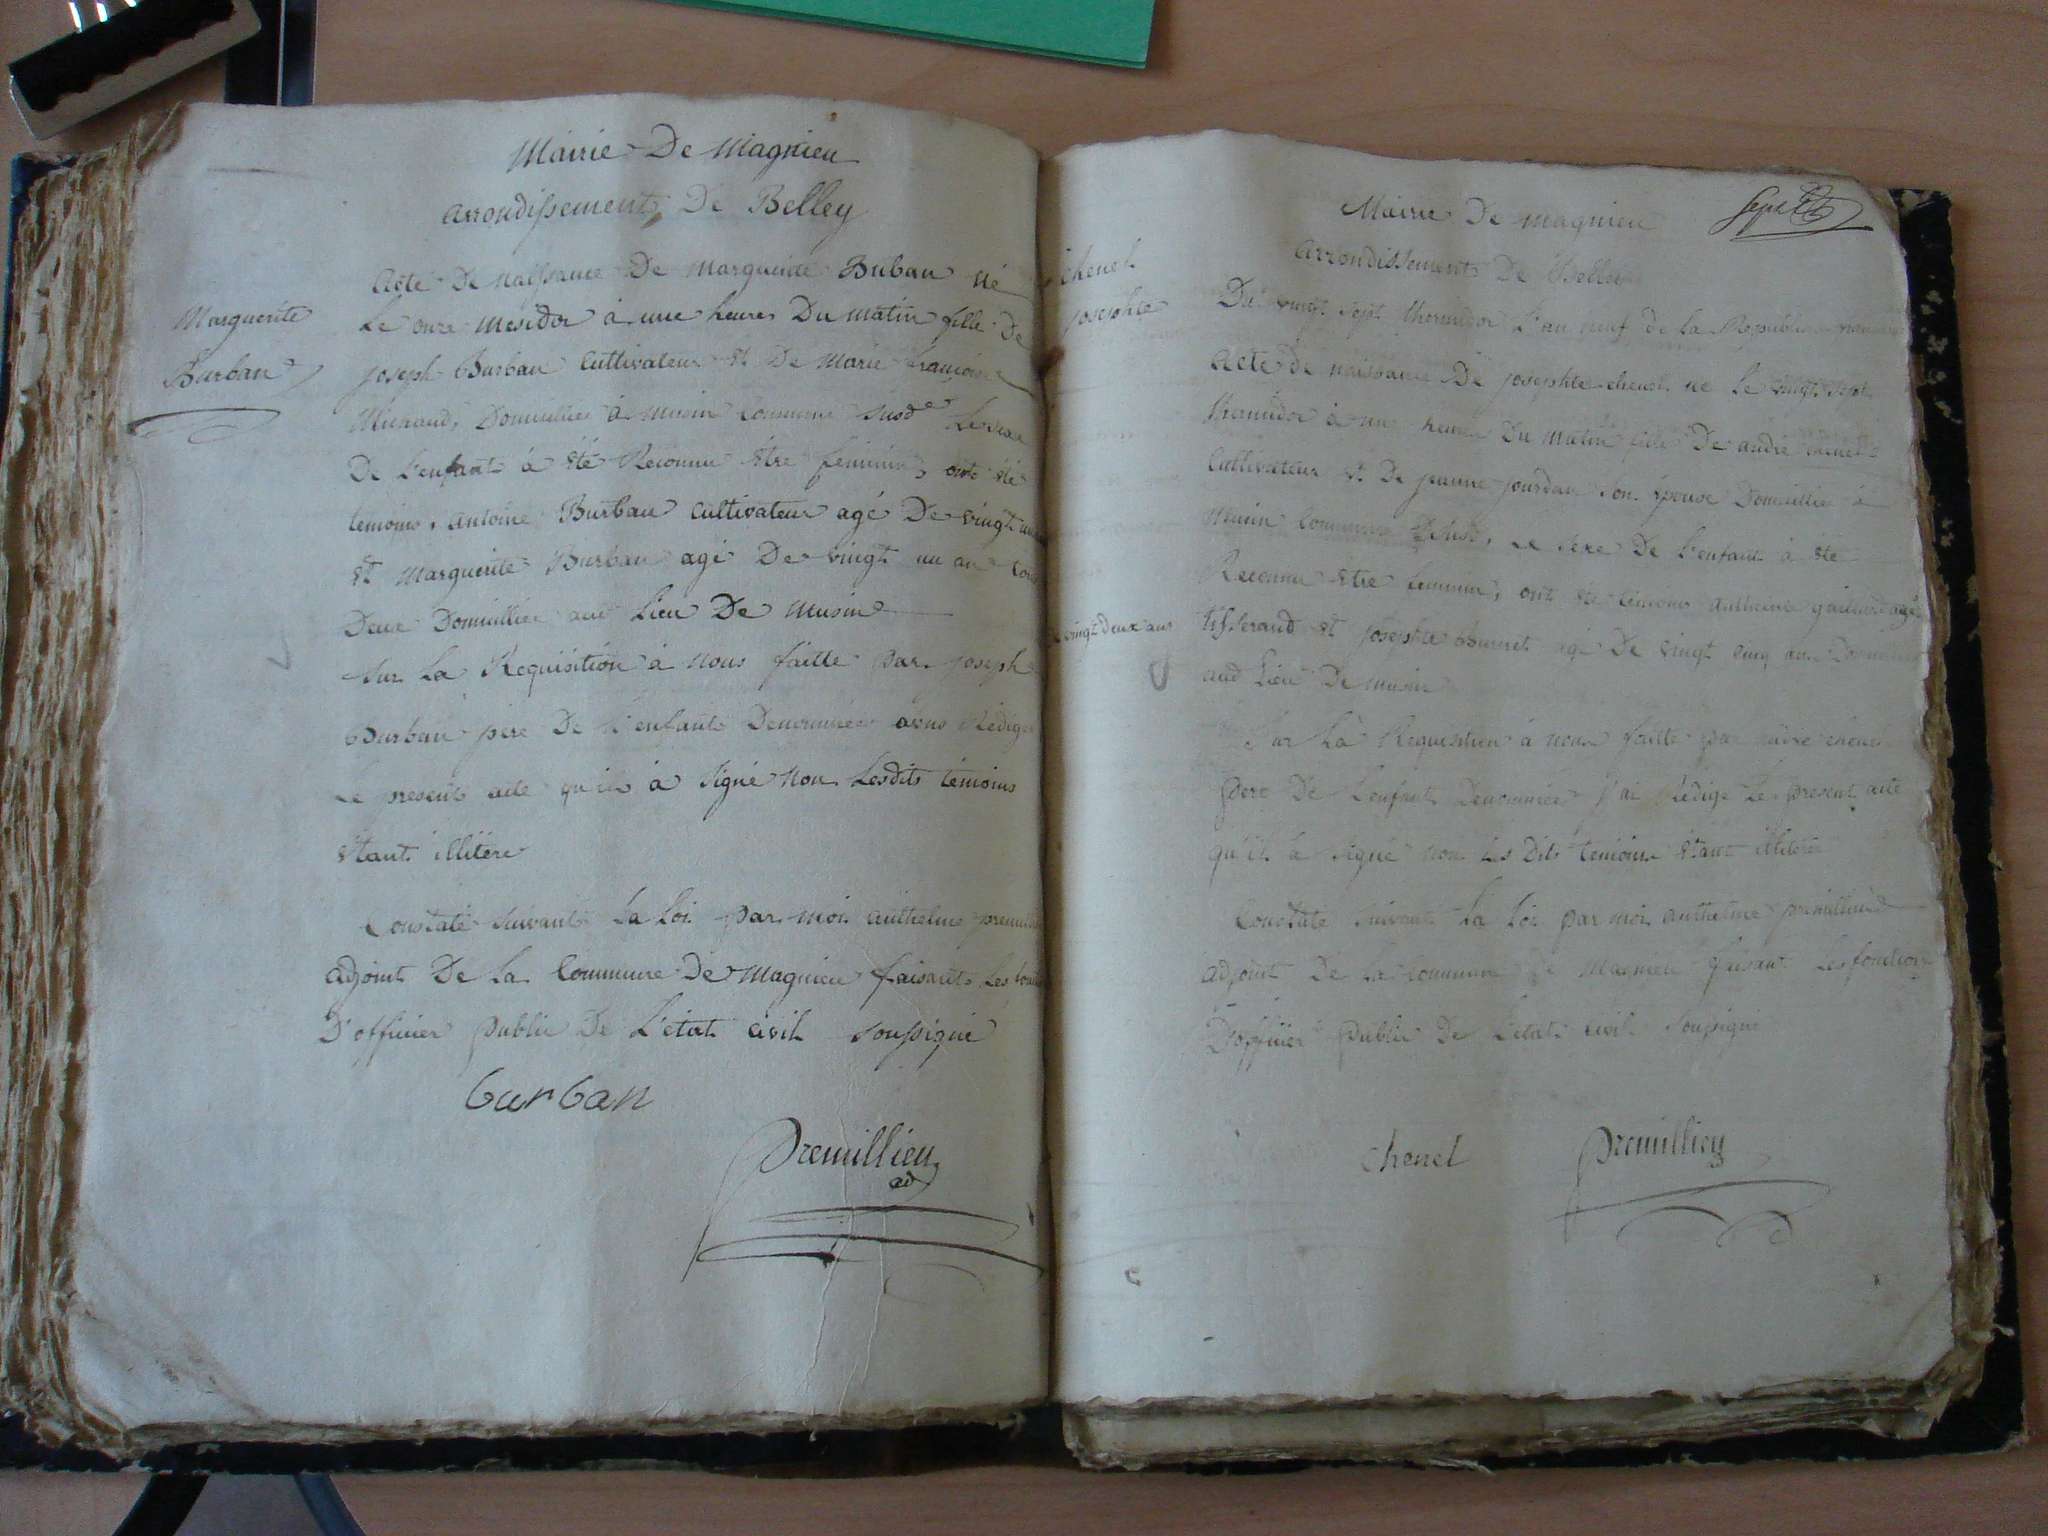 Mairie De Magnieu
arrondissement De Belley
Marguerite
Burban
acte De Naissance De Marguerite Buban Né
Le onze Mesidor à une heures Du matin fille De
joseph Burban Cultivateur et De Marie françoise
Michaud, Domiciliés à musin Commune susd Le sexe
De L'enfant à été Reconnu être feminin, ont été
temoins, antoine Burban cultivateur agé De vingt
et Marguerite Burban agé De vingt un an
Deux Domicilies aud Lieu De Musin
sur La Requisition à nous faitte par joseph
Burban père De L'enfant Denommée avons Rédigé
Le present acte qu'il à signé Non Lesdits témoins
étant illitére
Constaté suivant La Loi par moi anthelme
adjoint De La Commune De Magnieu faisant Les
D'officier public De L'état civil soussigné
burban
Premillieu
ad
Mairie De magnieu
arrondissement De Belley
chenel
josephte
Du vingt sept thermidor L'an neuf de La Republique
acte de naissance De josephte chenel né Le vingt sept
thermidor à une heures Du matin fille De andré chenel
Cultivateur et De jeanne jourdan son épouse Domicilies à
Musin Commune susd, Le sexe De L'enfant à été
Reconnu être feminin, ont été temoins anthelme agé
vingt deux ans
tisserand et josephte Burnet agé De vingt cinq ans
aud Lieu De musin
Sur Là Requisition à nous faitte par andré chenel
père De L'enfant Denommée j'ai Rédigé Le present acte
qu'il à signé non Les Dits temoins étant illitére
Constaté suivant La Loi par moi anthelme premillieu
adjoint De La Commune De Magnieu faisant Les fonctions
D'officier public De L'état civil soussigné
chenel
Premillieu